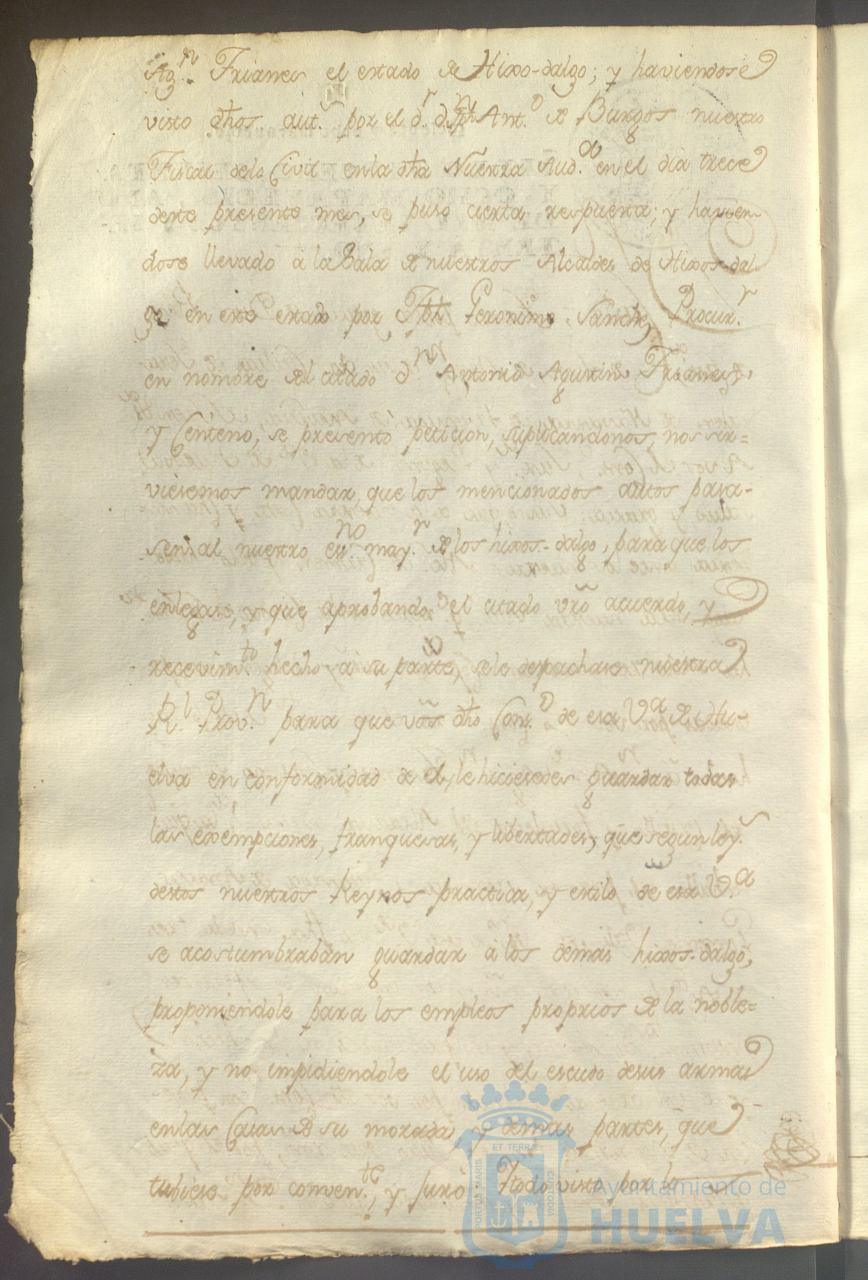 Ag.ⁿ Trianes el estado de Hixo-dalgo; y haviendose
visto dhos aut.ˢ por el d.ʳ d.ⁿ Jph Ant.º de Burgos nuestro
Fiscal delo Civil enla dha Nuestra Aud.ª en el dia trece
deste presente mes, se puso cierta respuesta; y havien
dose llevado à la Sala de nuestros Alcaldes de Hixos-dal
go en este estado por Jph Geronimo Sanchz, Procur.ʳ
en nombre del citado d.ⁿ Antonio Agustin Trianes,
y Centeno, se presento peticion, suplicandonos, nos sir=
viesemos mandar, que los mencionados autos pasa-
sen al nuestro esⁿº may.ʳ de los hixos-dalgo, para que los
enlegase, y que aprobandose el citado vrõ acuerdo, y
recevim.ᵗº hecho a su parte, sele despachase nuestra
R.ˡ Prov.ⁿ para que vos dho Con.º de esa Vª de Hu-
elva en conformidad de el, le hiciesedes guardar todas
las exempciones, franquesas, y libertades, que segun ley.ˢ
destos nuestros Reynos practica, y estilo de esa Vª
se acostumbraban guardar a los demas hixos-dalgo,
proponiendole para los empleos proprios de la noble=
za, y no impidiendole el uso del escudo desus armas
enlas Casas de su morada y demas partes, que
tubiese por conven.ᵗᵉ, y Juró Ytodo visto por los
Ayuntamiento de
HUELVA
PORTUS MARIS
ET TERRAE
CUSTODIA